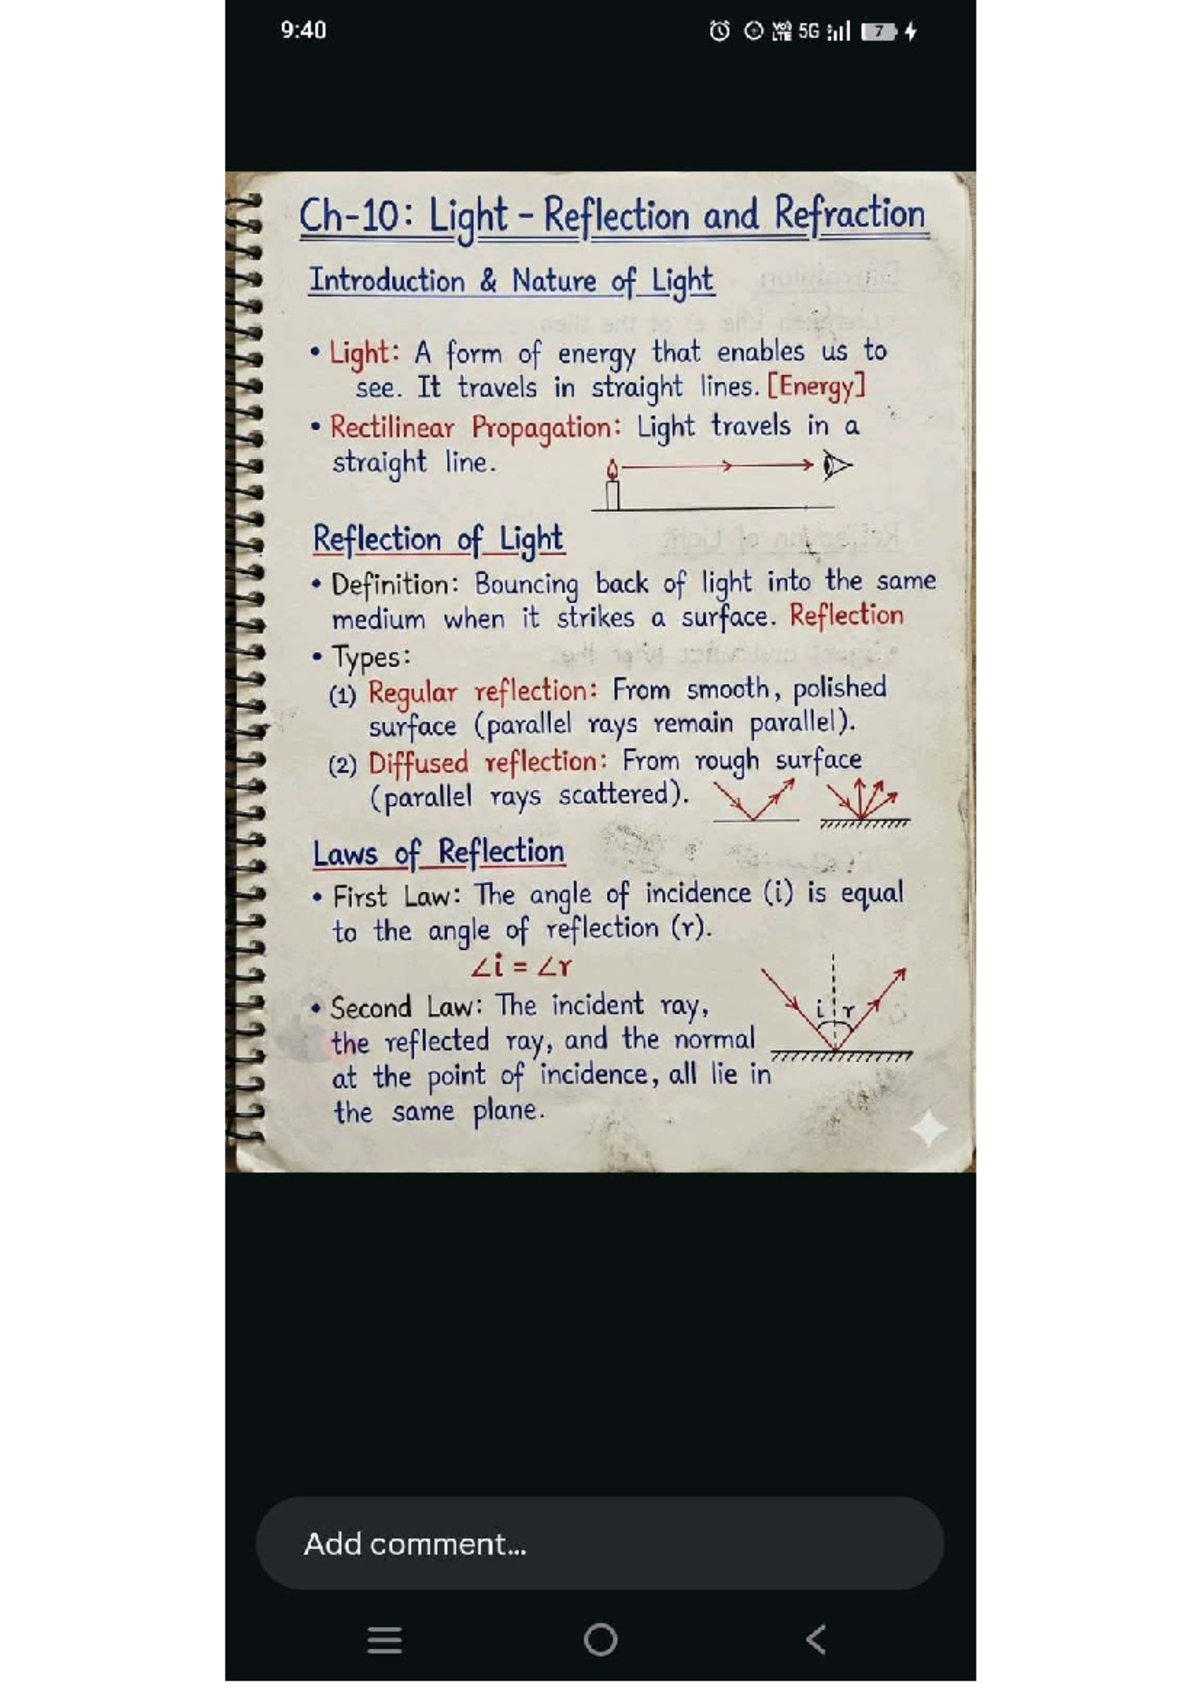 9:40
5G
7
Ch-10: Light - Reflection and Refraction
Introduction & Nature of Light
• Light: A form of energy that enables us to
see. It travels in straight lines. [Energy]
• Rectilinear Propagation: Light travels in a
straight line.
Reflection of Light
• Definition: Bouncing back of light into the same
medium when it strikes a surface. Reflection
• Types:
(1) Regular reflection: From smooth, polished
surface (parallel rays remain parallel).
(2) Diffused reflection: From rough surface
(parallel rays scattered).
Laws of Reflection
• First Law: The angle of incidence (i) is equal
to the angle of reflection (r).
∠i = ∠r
• Second Law: The incident ray,
the reflected ray, and the normal
at the point of incidence, all lie in
the same plane.
i r
Add comment...